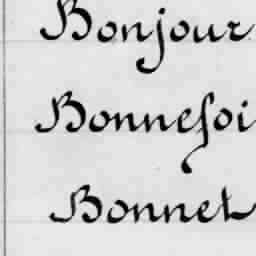 Bonjour
Bonnefoi
Bonnet